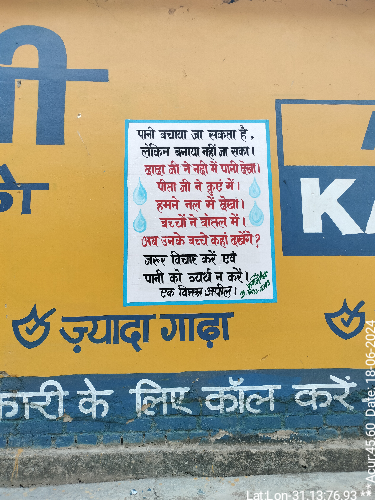 को
पानी बचाया जा सकता है,
लेकिन बनाया नहीं जा सका।
दादा जी ने नदी में पानी देखा।
पीता जी ने कुएं में।
हमने नल में देखा।
बच्चों ने बोतल में।
अब उनके बच्चे कहाँ देखेंगे?
जरूर विचार करें एवं
पानी को व्यर्थ न करें।
एक विनम्र अपील।
KA
ज़्यादा गाढ़ा
कारी के लिए कॉल करें
Lat Lon-31,13:76,93 ***
Acur:45.60 Date:18-06-2024